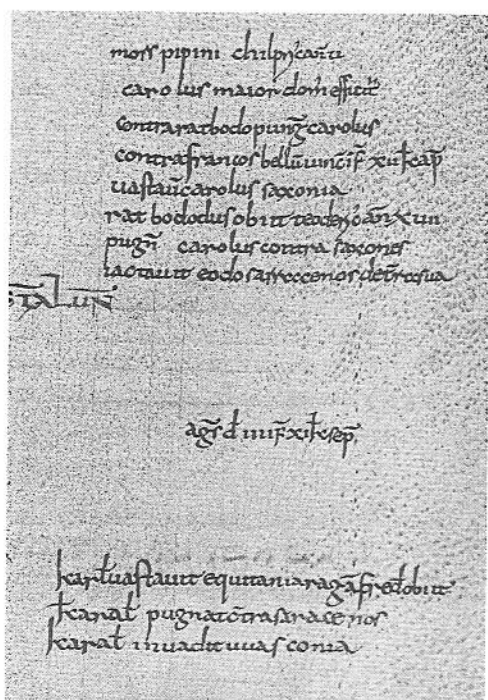 mors pipini chilpric anni
carolus maior dom̄ efficit̄
contra ratbodo pung̃ carolus
contra francos bellū vinc̄ i f̄ xii kł ap̄
uastaū carolus saxonia
ratbodus obiit
pugñ carolus contra saxones
iactauit eodo sarrocenos de trā sua
ag̃s d̄ iiii f̄ xii kł sep̄
karł uastauit equitania raganfred obiit
karał pugnat c̄tra saracenos
karał inuadit uuasconia